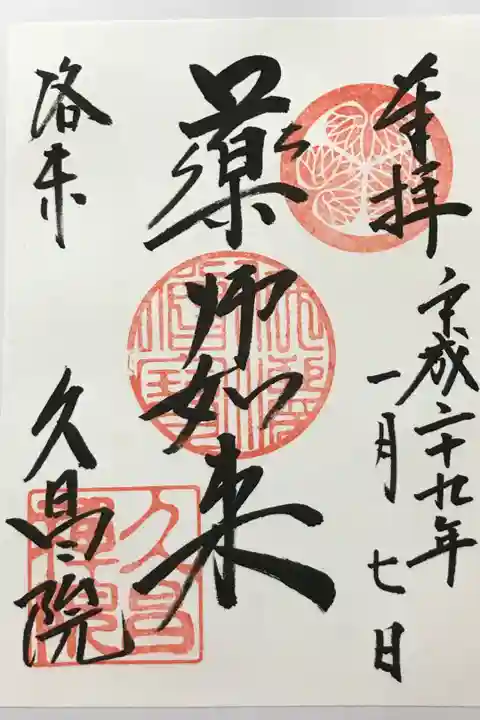 奉拝
平成二十九年
一月七日
薬師如来
洛東
久昌院
久昌
禅院